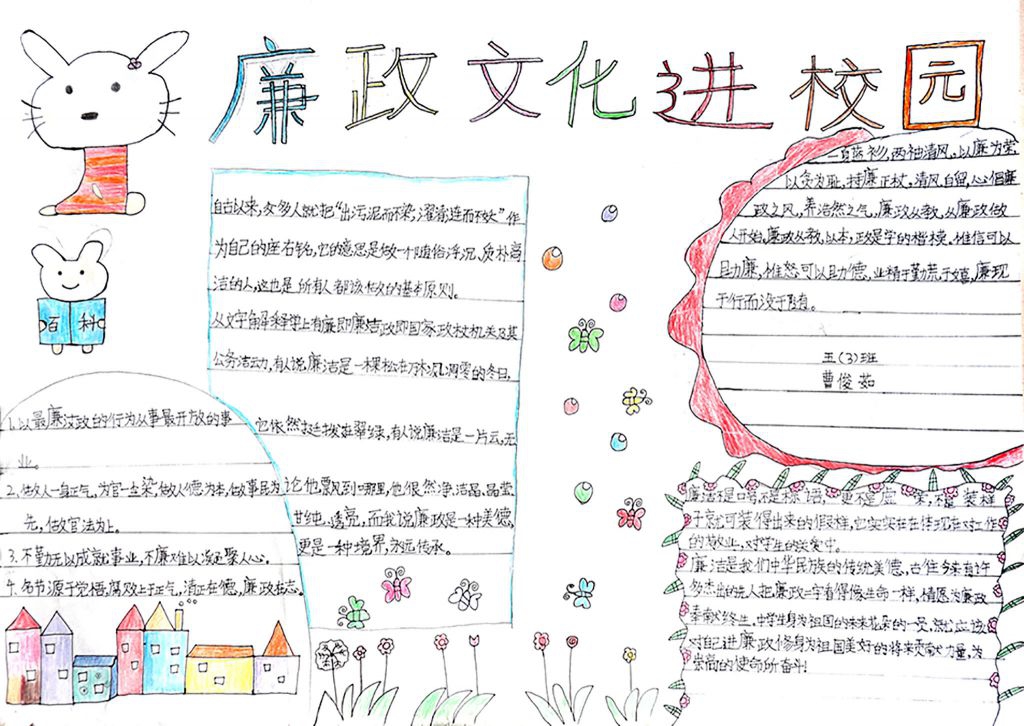 廉政文化进校园
自古以来,好多人就把“出污泥而不染,濯清涟而不妖”作
为自己的座右铭,它的意思是做一个随俗浮沉、质朴高
洁的人,这也是所有人都该做的基本原则。
从文字角度解释上有廉即廉洁政即国家政权机关及其
公务活动,有人说廉洁是一棵松在万林凋零的冬日,
它依然挺拔翠绿,有人说廉洁是一片云,无
论他飘到哪里,他依然净,洁晶,晶莹,
甘纯,透亮,而我说廉政是一种美德,
更是一种境界,永远传承。
一身蓝衫,两袖清风,以廉为荣
以贪为耻,持廉正杖,清风自留,人心倡廉
政之风,养浩然之气,廉政从教,从廉政做
人开始,廉政从教,以本,政是学的楷模,惟信可以
自助廉,惟恕可以自助德,业精于勤荒于嬉,廉现
于行而没于随。
五(3)班
曹俊茹
百科
1.以最廉洁政的行为从事最开放的事
业。
2.做人一身正气,为官一尘染,做人德为本,做事民为
先,做官法为上。
3.不勤无以成就事业,不廉难以凝聚人心。
4.名节源于觉悟,腐败止于正气,清正在德,廉政在志。
廉洁不是口号,不是标语,更不是虚,不是装样
子就可装得出来的假样,它实实在在体现在对工作
的敬业,对学生的关爱中。
廉洁是我们中华民族的传统美德,古往今来有许
多杰出的先人把廉政二字看得像生命一样,情愿为廉政
奉献终生,中学生身为祖国的未来花朵的一员,就应该
对自己进廉政修身为祖国美好的将来贡献力量,为
崇高的使命所奋斗!